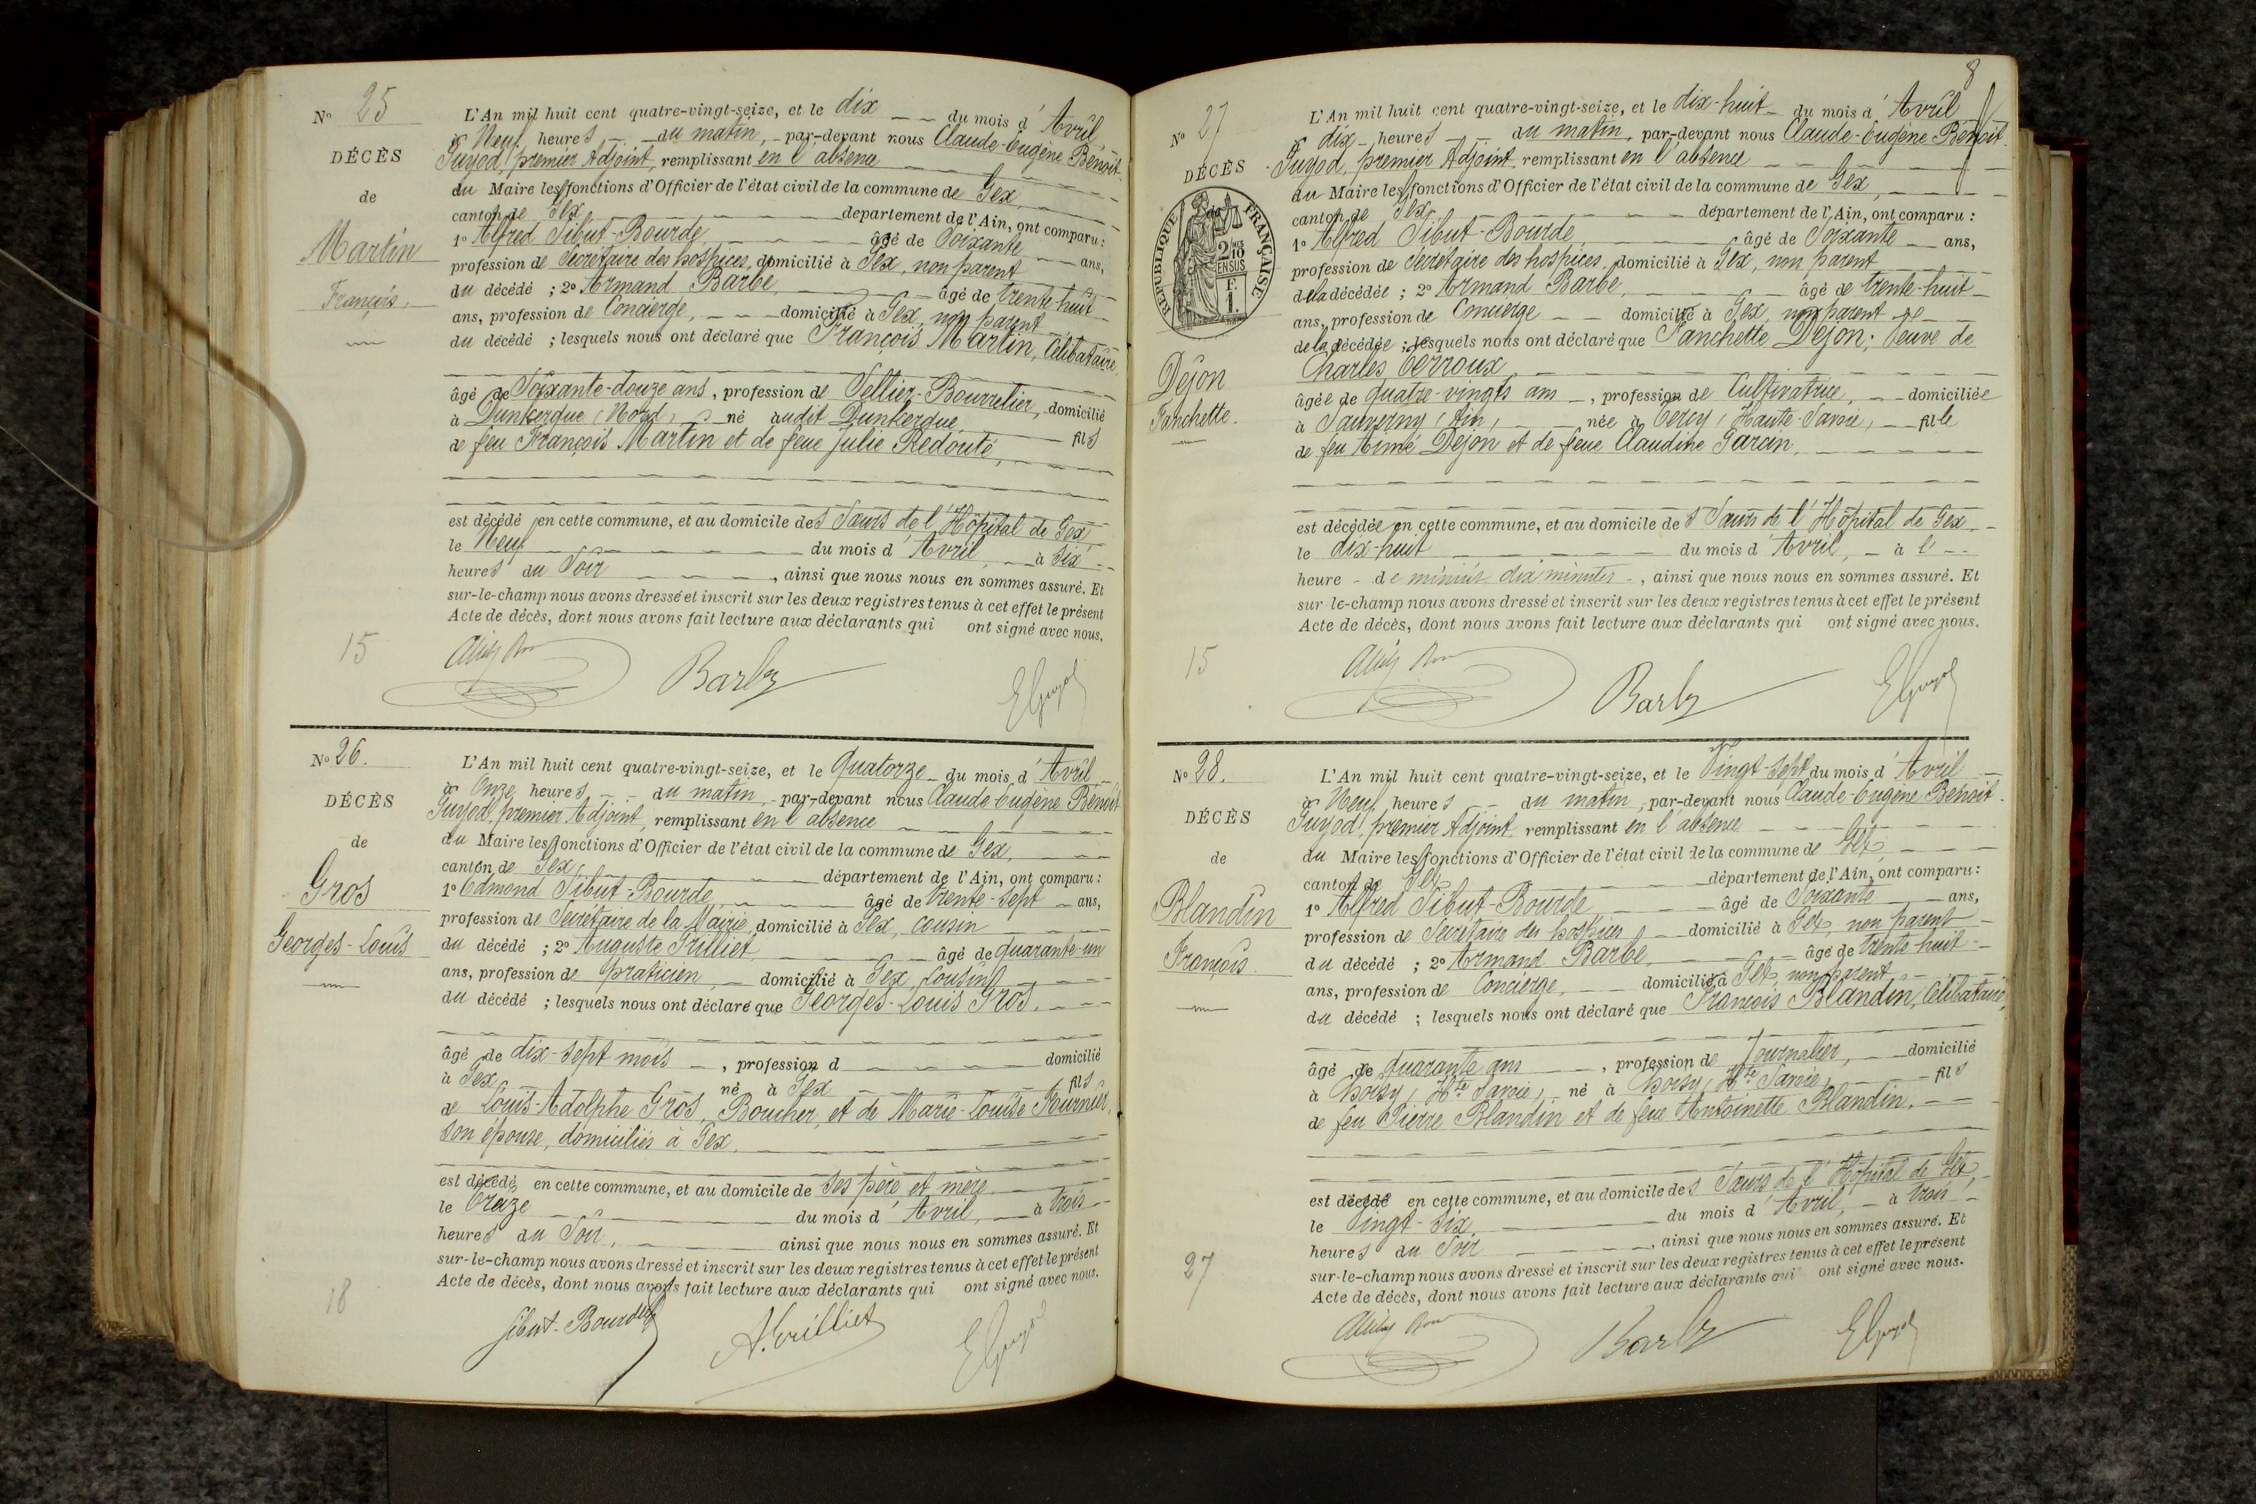 N° 25
DÉCÈS
de
Martin
François.
15
L'An mil huit cent quatre-vingt-seize, et le dix du mois d'Avril
à Neuf heures du matin, par-devant nous Claude-Eugène Benoit
premier Adjoint, remplissant en l'absence
du Maire les fonctions d'Officier de l'état civil de la commune de Gex,
canton de Gex département de l'Ain, ont comparu :
1° Alfred Sibut-Bourde âgé de Soixante ans,
profession de Secrétaire des hospices, domicilié à Gex, non parent
du décédé ; 2° Armand Barbe, âgé de trente-huit
ans, profession de Concierge, domicilié à Gex, non parent
du décédé ; lesquels nous ont déclaré que François Martin, Célibataire,
âgé de Soixante-douze ans, profession de Sellier-Bourrelier, domicilié
à Dunkerque (Nord) né audit Dunkerque fils
de feu François Martin et de feue Julie Redouté,
est décédé en cette commune, et au domicile des Sœurs de l'Hôpital de Gex
le Neuf du mois d'Avril, à Six
heures du Soir, ainsi que nous nous en sommes assuré. Et
sur-le-champ nous avons dressé et inscrit sur les deux registres tenus à cet effet le présent
Acte de décès, dont nous avons fait lecture aux déclarants qui ont signé avec nous.
Barbe
N° 26.
DÉCÈS
de
Gros
Georges-Louis
18
L'An mil huit cent quatre-vingt-seize, et le Quatorze du mois d'Avril
à Onze heures du matin, par-devant nous Claude Eugène Benoit
premier Adjoint, remplissant en l'absence
du Maire les fonctions d'Officier de l'état civil de la commune de Gex,
canton de Gex département de l'Ain, ont comparu :
1° Edmond Sibut-Bourde âgé de trente-sept ans,
profession de Secrétaire de la Mairie, domicilié à Gex, cousin
du décédé ; 2° Auguste âgé de quarante-un
ans, profession de praticien, domicilié à Gex, Cousin
du décédé ; lesquels nous ont déclaré que Georges-Louis Gros,
âgé de dix-sept mois, profession d domicilié
à Gex né à Gex fils
de Louis-Adolphe Gros, Boucher, et de Marie-Louise Fournier,
son épouse, domiciliés à Gex,
est décédé en cette commune, et au domicile de ses père et mère
le Treize du mois d'Avril, à trois
heures du Soir, ainsi que nous nous en sommes assuré. Et
sur-le-champ nous avons dressé et inscrit sur les deux registres tenus à cet effet le présent
Acte de décès, dont nous avons fait lecture aux déclarants qui ont signé avec nous.
Sibut-Bourde
8
N° 27
DÉCÈS
RÉPUBLIQUE FRANÇAISE
2/10 EN SUS
F. 1.
Dejon
Fanchette.
15
L'An mil huit cent quatre-vingt-seize, et le dix-huit du mois d'Avril
à dix heures du matin, par-devant nous Claude-Eugène Benoit
premier Adjoint, remplissant en l'absence
du Maire les fonctions d'Officier de l'état civil de la commune de Gex,
canton de Gex département de l'Ain, ont comparu :
1° Alfred Sibut-Bourde âgé de Soixante ans,
profession de Secrétaire des hospices, domicilié à Gex, non parent
de la décédée ; 2° Armand Barbe, âgé de trente-huit
ans, profession de Concierge domicilié à Gex, non parent
de la décédée ; lesquels nous ont déclaré que Fanchette Dejon, Veuve de
Charles Terroux
âgée de quatre-vingts ans, profession de Cultivatrice, domiciliée
à Sauverny (Ain), née à Cercy (Haute-Savoie), fille
de feu Aimé Dejon et de feue Claudine Garin,
est décédée en cette commune, et au domicile des Sœurs de l'Hôpital de Gex
le dix-huit du mois d'Avril, à
heure de minuit dix minutes, ainsi que nous nous en sommes assuré. Et
sur-le-champ nous avons dressé et inscrit sur les deux registres tenus à cet effet le présent
Acte de décès, dont nous avons fait lecture aux déclarants qui ont signé avec nous.
Barbe
N° 28.
DÉCÈS
de
Blandin
François.
27
L'An mil huit cent quatre-vingt-seize, et le Vingt-sept du mois d'Avril
à Neuf heures du matin, par-devant nous Claude-Eugène Benoit
premier Adjoint, remplissant en l'absence
du Maire les fonctions d'Officier de l'état civil de la commune de Gex,
canton de Gex département de l'Ain, ont comparu :
1° Alfred Sibut-Bourde âgé de Soixante ans,
profession de Secrétaire des hospices, domicilié à Gex, non parent
du décédé ; 2° Armand Barbe, âgé de trente-huit
ans, profession de Concierge, domicilié à Gex, non parent
du décédé ; lesquels nous ont déclaré que François Blandin, Célibataire,
âgé de quarante ans, profession de Journalier, domicilié
à (Hte Savoie), né à (Hte Savoie), fils
de feu Pierre Blandin et de feue Antoinette Blandin,
est décédé en cette commune, et au domicile des Sœurs de l'Hôpital de Gex,
le Vingt-six du mois d'Avril, à trois
heures du Soir, ainsi que nous nous en sommes assuré. Et
sur-le-champ nous avons dressé et inscrit sur les deux registres tenus à cet effet le présent
Acte de décès, dont nous avons fait lecture aux déclarants qui ont signé avec nous.
Barbe